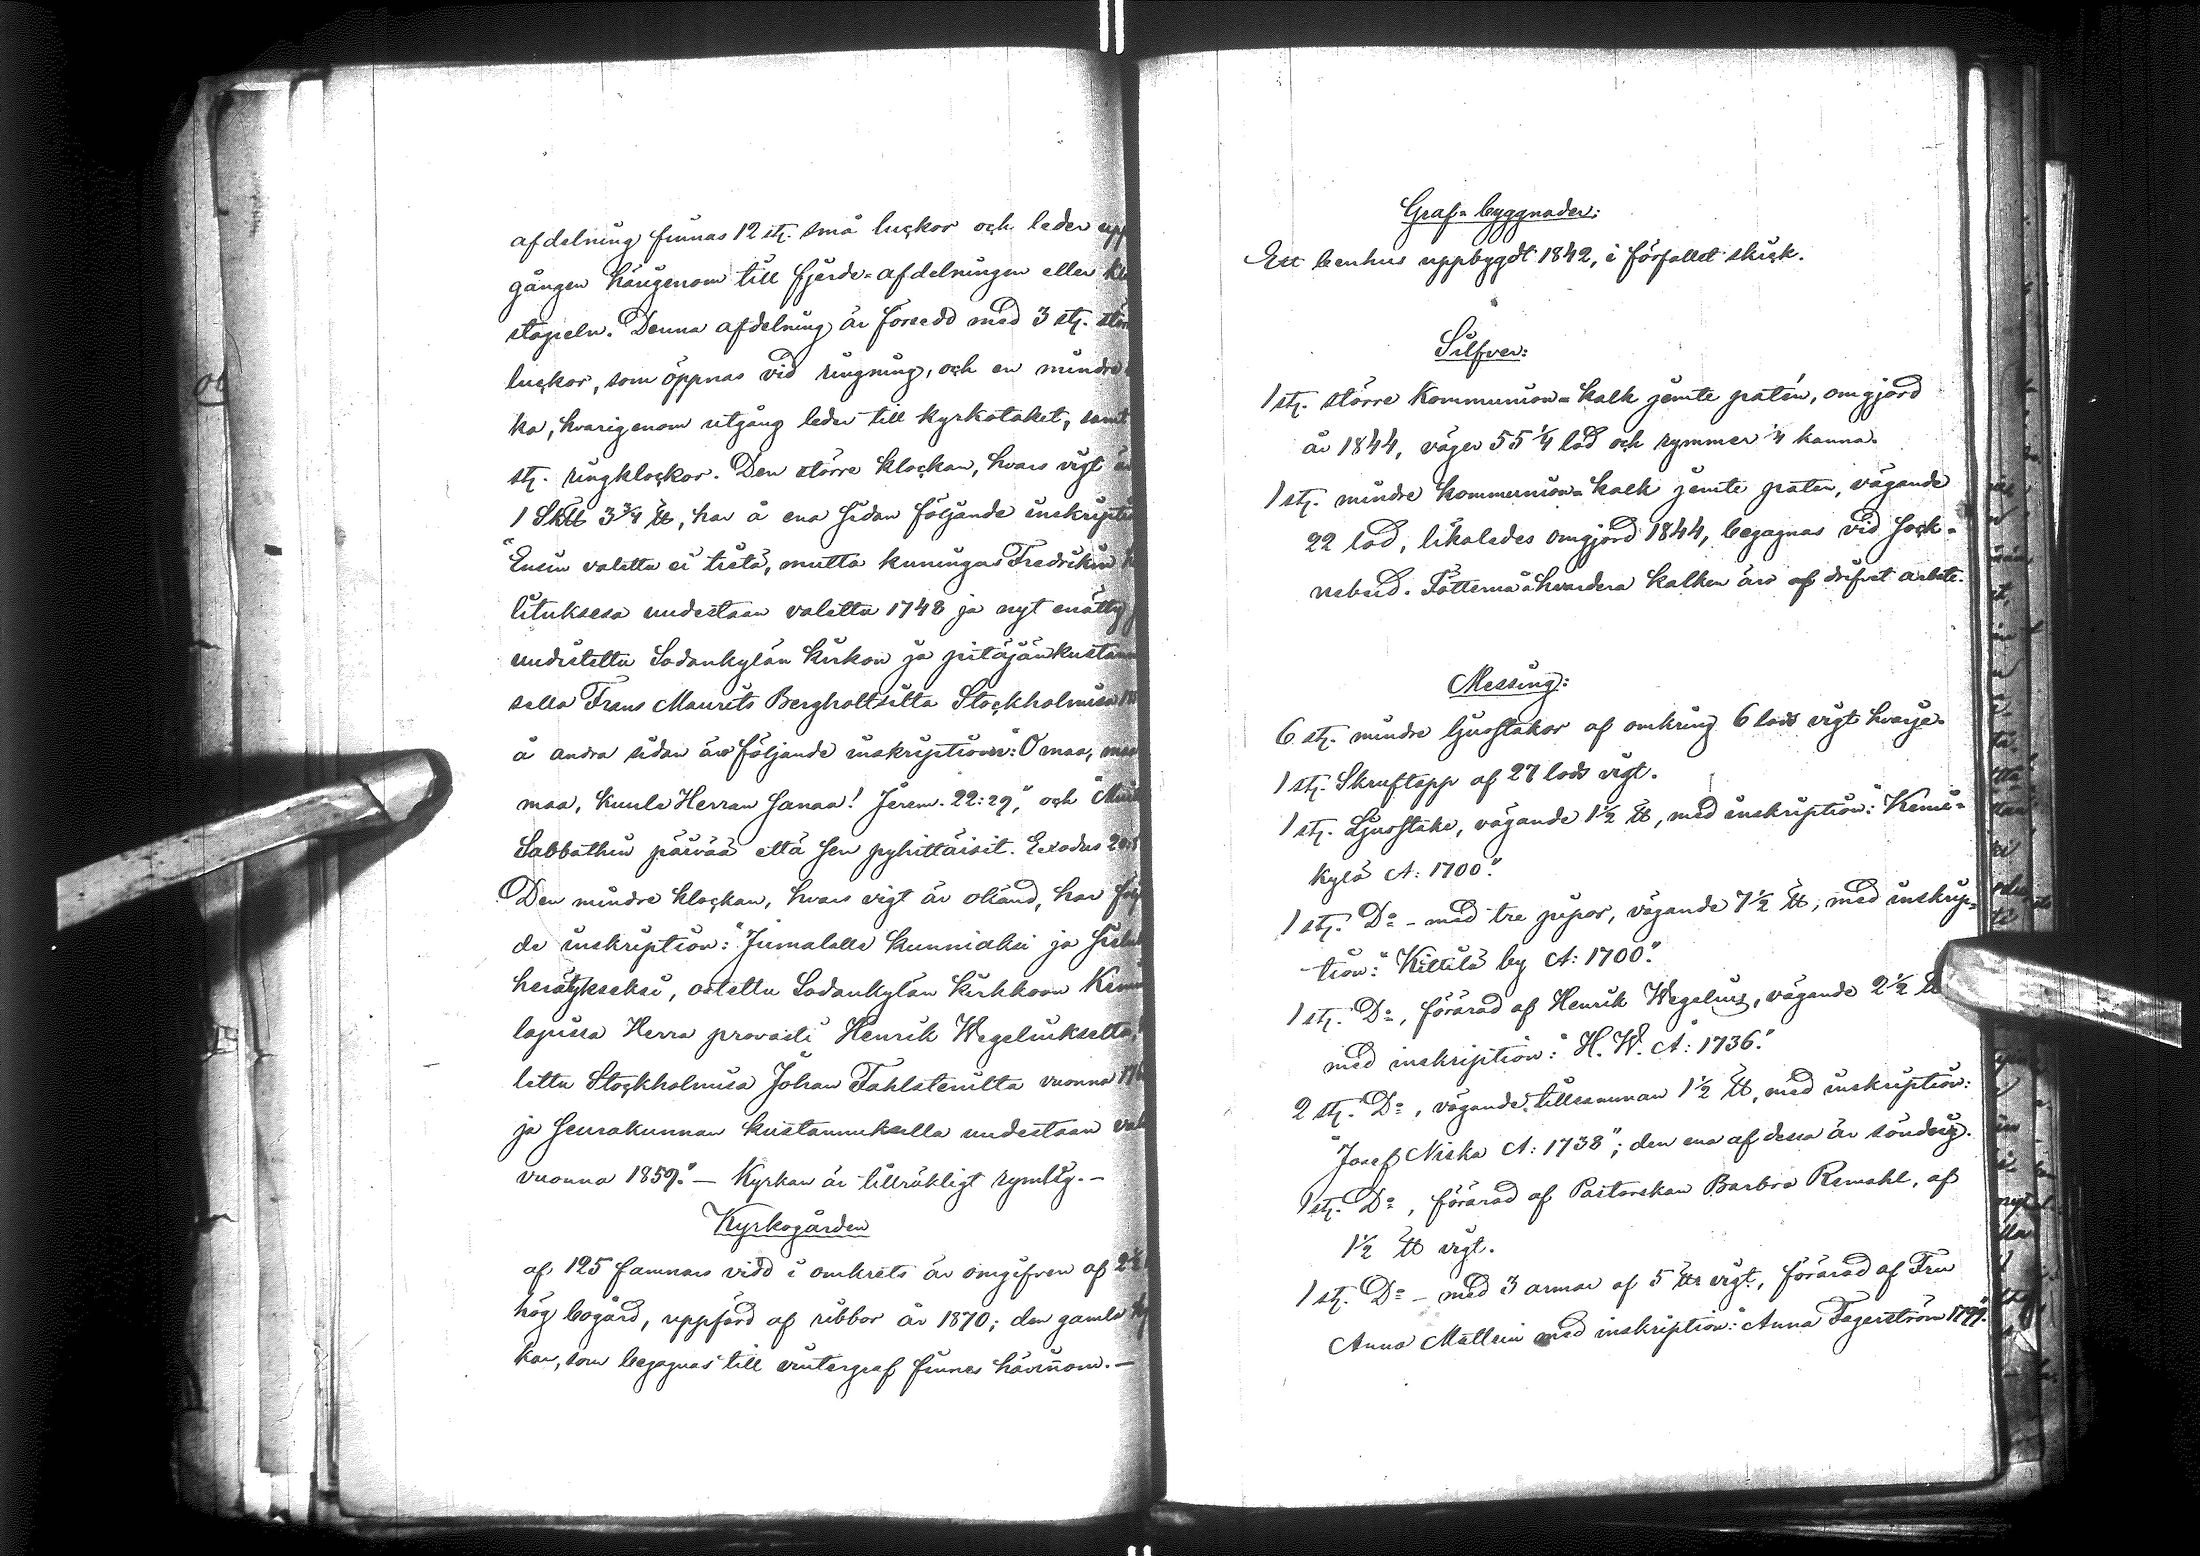 afdelning finnas 12 st. små luckor och leder upp
gången härigenom till fjerde=afdelningen eller
stapeln. Denna afdelning är försedd med 3 st. stör
luckor, som öppnas vid ringning, och en mindre
ka, hvarigenom utgång leder till kyrkotaket, samt
st. ringklockor. Den större klockan, hvars vigt är
1 Sk℔ 3¾ ℔, har å ena sidan följande inskriptio
"Ensin valettu ei tietä, mutta kuningas Fredrikin
lituksessa uudestaan valettu 1748 ja nyt enätty
uudistettu Sodankylän kirkon ja pitäjän kustann
sella Frans Maurits Bergholtsilta Stockholmissa
å andra sidan äro följande inskriptioner: "O maa, maa
maa, kuule Herran sanaa! Jerem. 22:29," och "Muis
Sabbathin päivää että sen pyhittäisit. Exodus 20:8
Den mindre klockan, hvars vigt är okänd, har föl
de inskription: "Jumalalle kunniaksi ja
herätykseksi, ostettu Sodankylän kirkkoon Kemi
lapissa Herra provasti Henrik Wegeliukselta,
lettu Stockholmisa Johan Fahlstenilta vuonna
ja seurakunnan kustannuksella uudestaan val
vuonna 1859." — Kyrkan är tillräkligt rymlig. —
Kyrkogården
af 125 famnars vidd i omkrets är omgifven af
hög bogård, uppförd af ribbor år 1870; den gamla
kan, som begagnas till vintergraf finnes härinom. —
Graf=byggnader:
Ett benhus uppbygdt 1842, i förfallet skick.
Silfver:
1 st. större Kommunion=kalk jemte patén, omgjord
år 1844, väger 55¼ lod och rymmer ¼ kanna.
1 st. mindre Kommunion=kalk jemte paten, vägande
22 lod, likaledes omgjord 1844, begagnas vid sock=
nebud. Fötterna å hvardera kalken äro af drifvet arbete.
Messing:
6 st. mindre ljusstakar af omkring 6 lods vigt hvarje.
1 st. Skruftapp af 27 lods vigt.
1 st. Ljusstake, vägande 1½ ℔, med inskription: "Kemi=
kylä A: 1700."
1 st. Do - med tre pipor, vägande 7½ ℔, med inskrip=
tion: "Kittilä by A: 1700."
1 st. Do, förärad af Henrik Wegelius, vägande 2½ ℔
med inskription: "H. W. A: 1736."
2 st. Do, vägande tillsamman 1½ ℔, med inskription:
"Josef Niska A: 1738"; den ena af dessa är söndrig.
1 st. Do, förärad af Pastorskan Barbro Remahl, af
1½ ℔ vigt.
1 st. Do - med 3 armar af 5 ℔s vigt, förärad af Fru
Anna Mathein med inskription: "Anna Fagerström 1799."